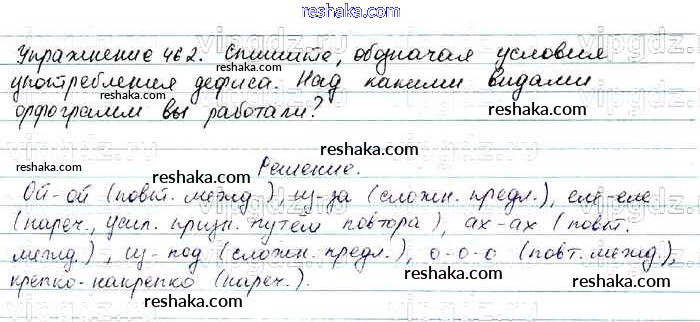 reshaka.com
Упражнение 462. Спишите, обозначая условия
reshaka.com
употребления дефиса. Над какими видами
reshaka.com
reshaka.com
орфограмм вы работали?
reshaka.com
reshaka.com
Решение.
reshaka.com
Ой-ой (повт. межд.) из-за (сложн. предл.), еле-еле
reshaka.com
(нареч., усил. призн. путём повтора), ах-ах (повт.
reshaka.com
межд.), из-под (сложн. предл.), о-о-о (повт. межд.),
reshaka.com
крепко-накрепко (нареч.).
reshaka.com
reshaka.com